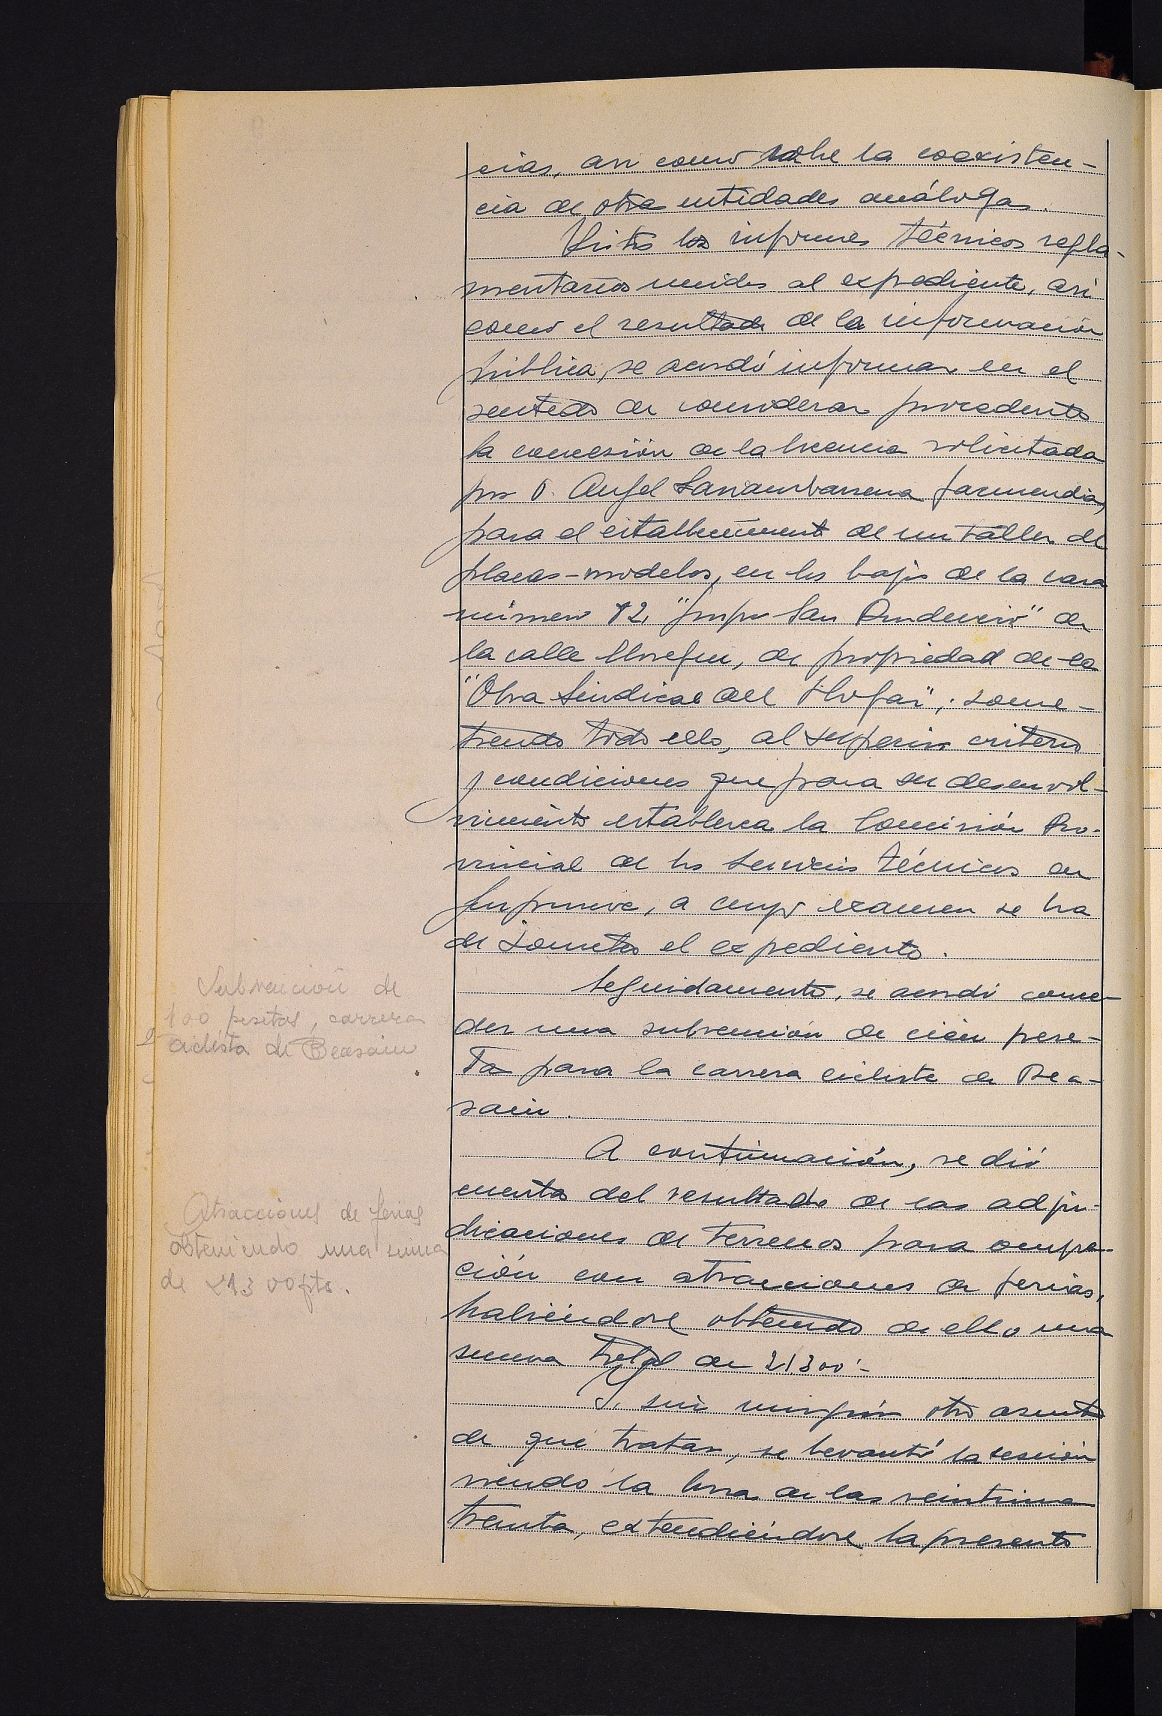 cias, asi como sobre la coexisten-
cia de otra entidades análogas.
Vistos los informes técnicos regla-
mentarios unidos al expediente, asi
como el resultado de la información
pública, se acordó informar en el
sentido de considerar procedente
la concesión de la licencia solicitada
por D. Angel Larrambarrena Garmendia,
para el establecimiento de un taller de
placas-modelos, en los bajos de la casa
número 12, "Grupo San Prudencio" de
la calle, de propiedad de la
"Obra Sindical del Hogar"; some-
tiendo todo ello, al superior criterio
y condiciones que para su desenvol-
vimiento establezca la Comisión Pro-
vincial de los Servicios Técnicos de
Guipuzcoa, a cuyo examen se ha
de someter el expediente.
Subvención de
100 pesetas, carrera
ciclista de Beasain
Seguidamente, se acordó conce-
der una subvención de cien pese-
ta para la carrera ciclista de Bea-
sain.
A continuación, se dió
cuenta del resultado de las adju-
dicaciones de terrenos para ocupa-
ción con atracciones de ferias,
habiéndose obtenido de ello una
suma total de 21300'-
Atracciones de ferias
obteniendo una suma
de 21300 pts.
Y, sin ningún otro asunto
de que tratar, se levantó la sesión
siendo la hora de las veintiuna
treinta, extendiéndose la presente